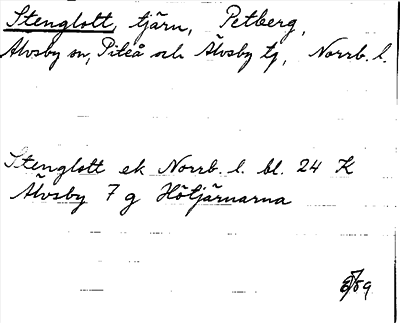 Stenglott, tjärn, Petberg,
Älvsby sn, Piteå och Älvsby tg, Norrb. l.
Stenglott ek Norrb. l. bl. 24 K
Älvsby 7 g Hötjärnarna